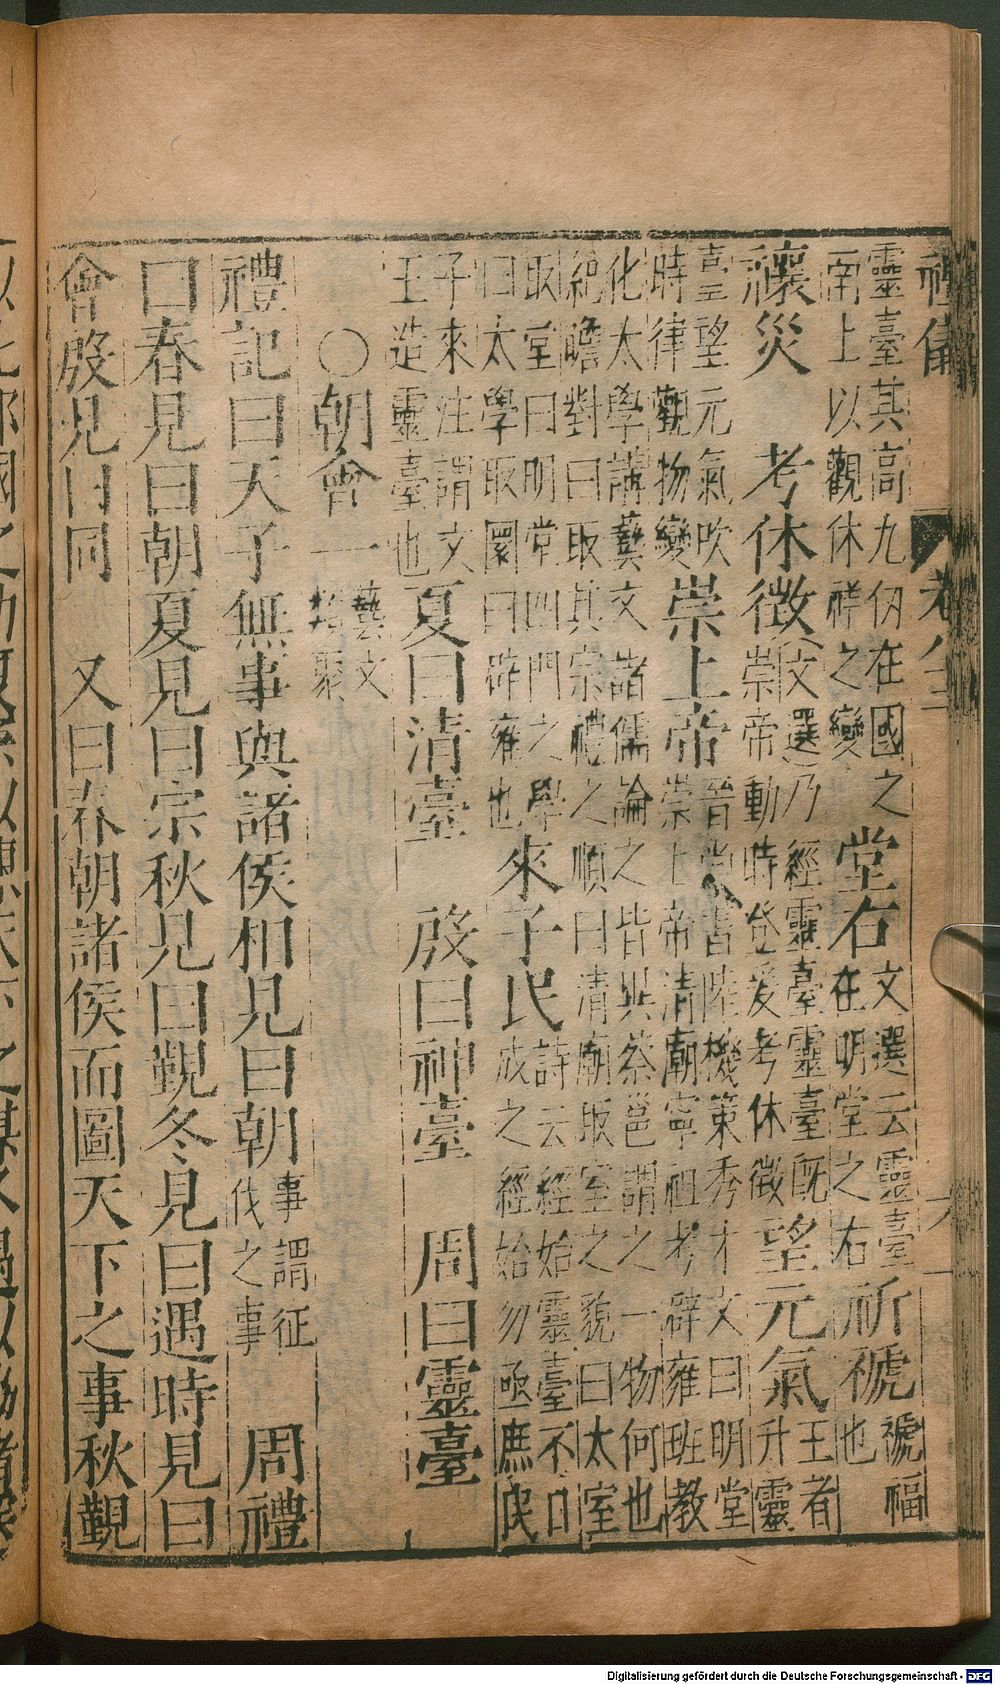 靈臺其高九仞在國之南上以觀休祥之變 堂右 文選云靈臺在明堂之右 祈禠 禠福也
禳災 考休徵 (文選)乃經靈臺靈臺既崇帝動時登爰考休徵 望元氣 王者升靈
臺望元氣吹時律觀物變 崇上帝 晉尚書陸機策秀才文曰明堂崇上帝清廟寧祖考辟雍班教
化太學講藝文諸儒論之皆與蔡邕謂之一物何也紀瞻對曰取其宗禮之順曰清廟取室之貌曰太室
取堂曰明堂四門之學曰太學取圜曰辟雍也 來子民 詩云經始靈臺不日成之經始勿亟庶民
子來注謂文王造靈臺也 夏曰清臺 殷曰神臺 周曰靈臺
○朝會一 藝文類聚
禮記曰天子無事與諸侯相見曰朝 事謂征伐之事 周禮
曰春見曰朝夏見曰宗秋見曰覲冬見曰遇時見曰
會殷見曰同 又曰春朝諸侯而圖天下之事秋覲
Digitalisierung gefördert durch die Deutsche Forschungsgemeinschaft - DFG